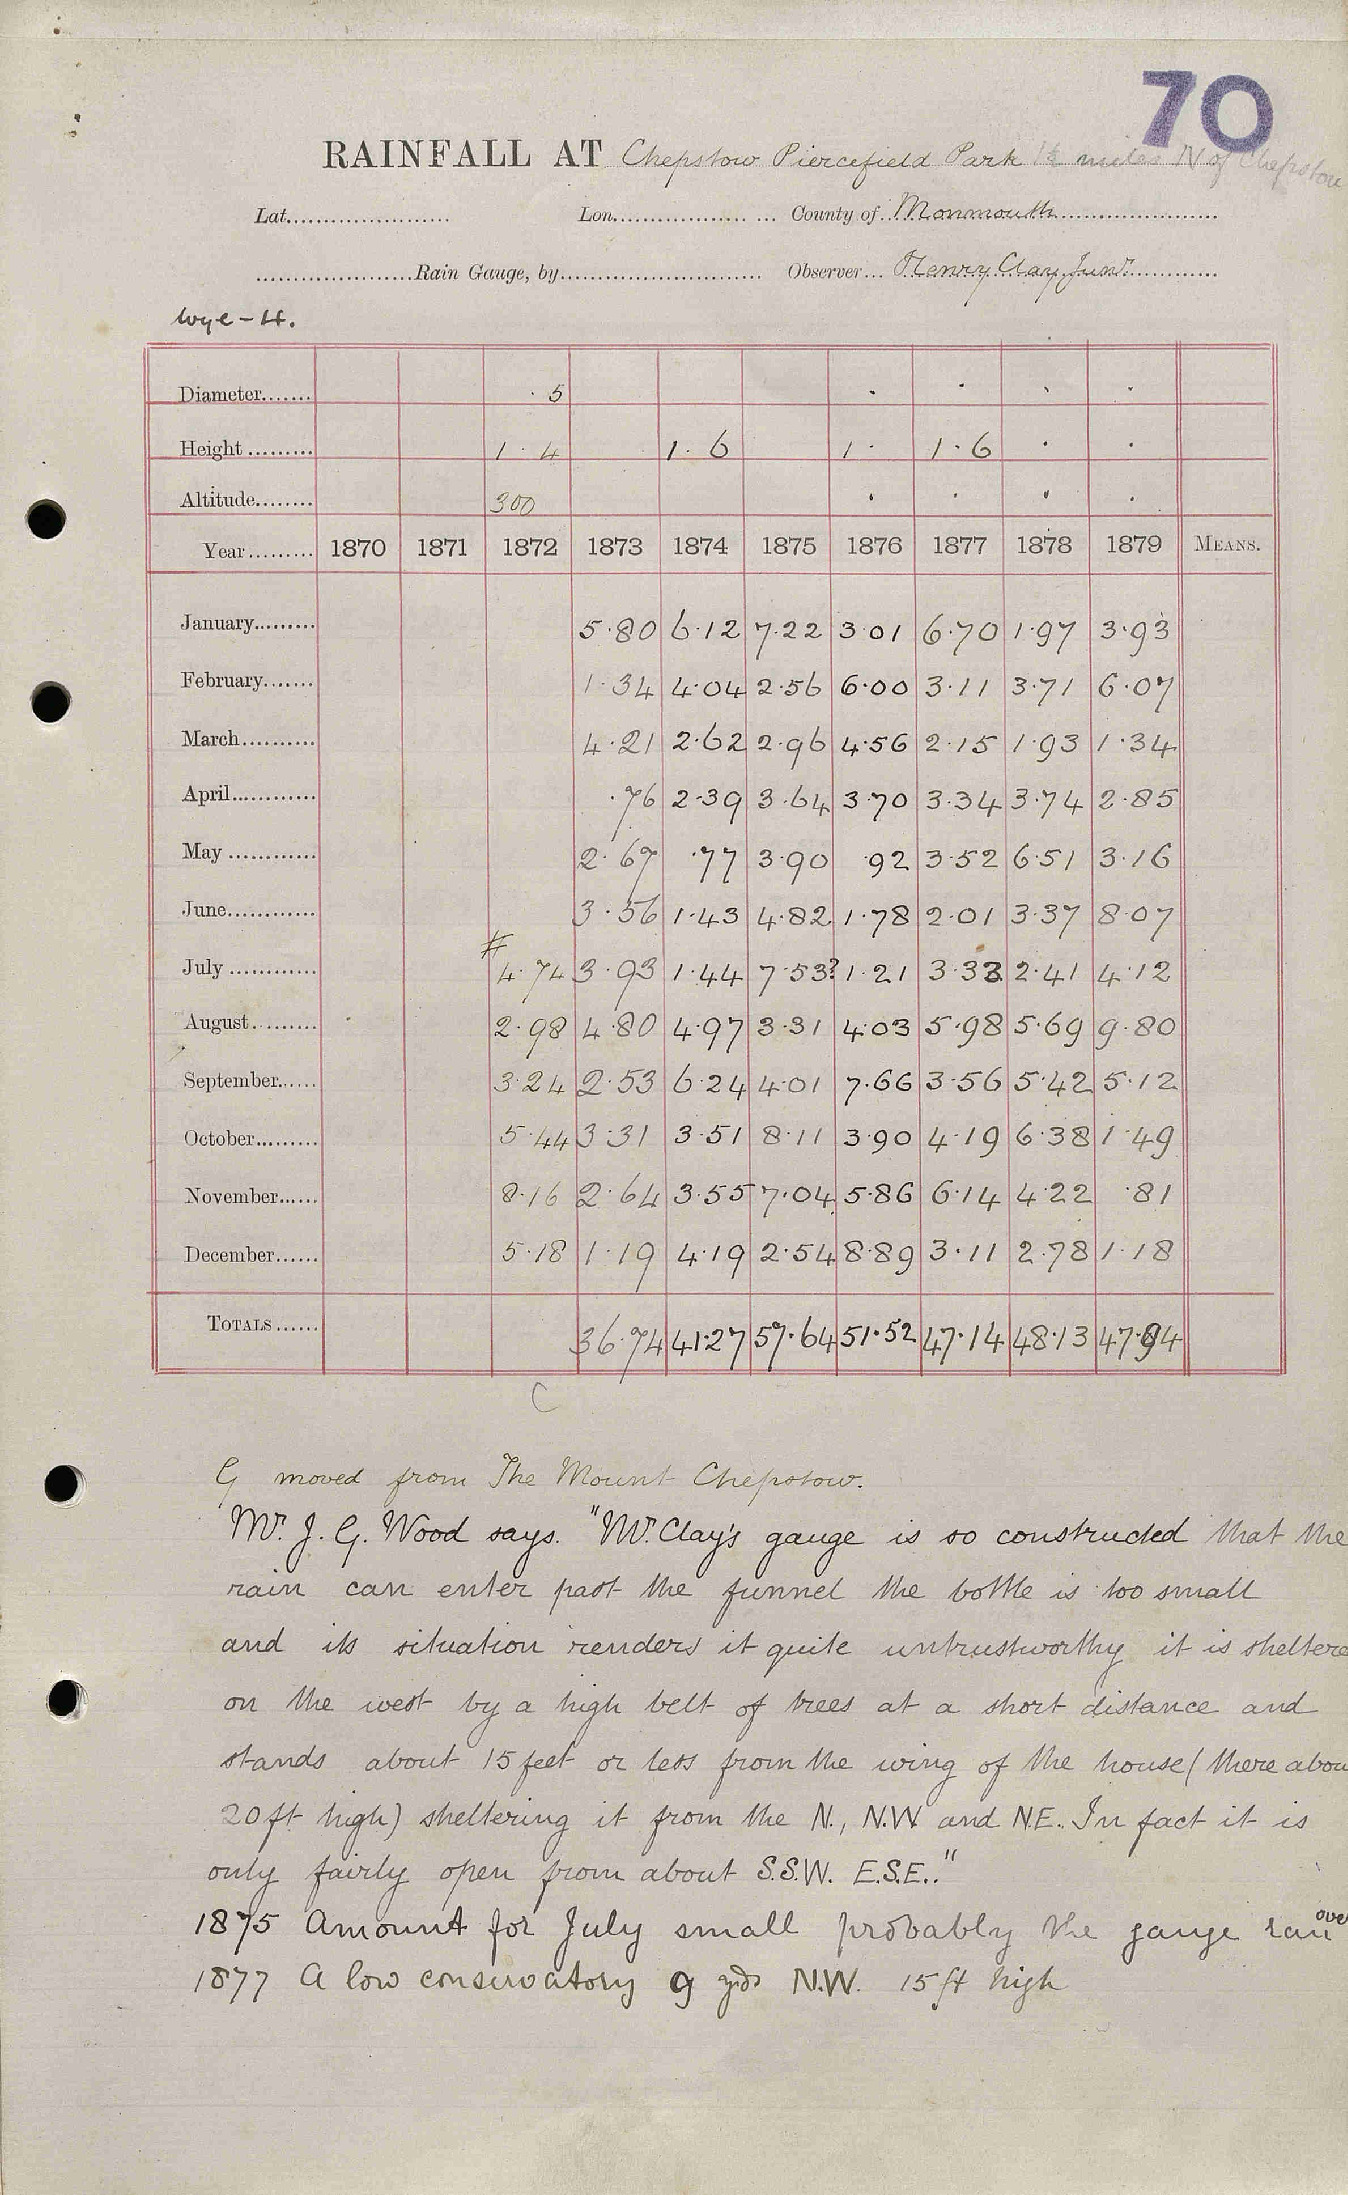 70
RAINFALL AT Chepstow Piercefield Park 1½ miles N of Chepstow
Lat...................... Lon.................. ... County of...Monmouth........................
......................Rain Gauge, by............................ Observer... Henry Clay, Junr..............
Wye-H.
Diameter....... · 5 · · · ·
Height ......... 1 · 4 1 · 6 1 · 1 · 6 · ·
Altitude........ 300 · · · ·
Year......... 1870 1871 1872 1873 1874 1875 1876 1877 1878 1879 MEANS.
January......... 5·80 6·12 7·22 3·01 6·70 1·97 3·93
February....... 1·34 4·04 2·56 6·00 3·11 3·71 6·07
March.......... 4·21 2·62 2·96 4·56 2·15 1·93 1·34
April............ ·76 2·39 3·64 3·70 3·34 3·74 2·85
May ............ 2·67 ·77 3·90 ·92 3·52 6·51 3·16
June............ 3·56 1·43 4·82 1·78 2·01 3·37 8·07
#
July ............ 4·74 3·93 1·44 7·53? 1·21 3·33 2·41 4·12
August.......... 2·98 4·80 4·97 3·31 4·03 5·98 5·69 9·80
September...... 3·24 2·53 6·24 4·01 7·66 3·56 5·42 5·12
October......... 5·44 3·31 3·51 8·11 3·90 4·19 6·38 1·49
November...... 8·16 2·64 3·55 7·04 5·86 6·14 4·22 ·81
December...... 5·18 1·19 4·19 2·54 8·89 3·11 2·78 1·18
TOTALS...... 36·74 41·27 57·64 51·52 47·14 48·13 47·94
C
G moved from The Mount Chepstow.
Mr. J. G. Wood says. "Mr. Clay's gauge is so constructed that the
rain can enter past the funnel the bottle is too small
and its situation renders it quite untrustworthy it is sheltere
on the west by a high belt of trees at a short distance and
stands about 15 feet or less from the wing of the house (there abou
20 ft high) sheltering it from the N., N.W and N.E. In fact it is
only fairly open from about S.S.W. E.S.E.."
1875 Amount for July small probably the gauge ran over
1877 A low conservatory 9 yds N.W. 15 ft high